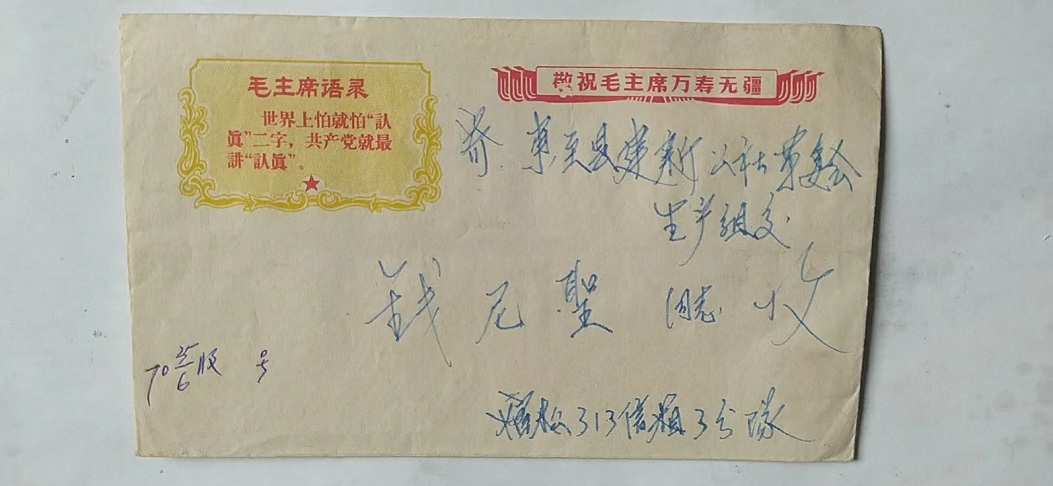 毛主席语录
世界上怕就怕“认
真”二字，共产党就最
讲“认真”。
敬祝毛主席万寿无疆
寄 东至县建新公社革委会
生产组交
钱尼圣 同志 收
70 25/6 收 号
313信箱3分队